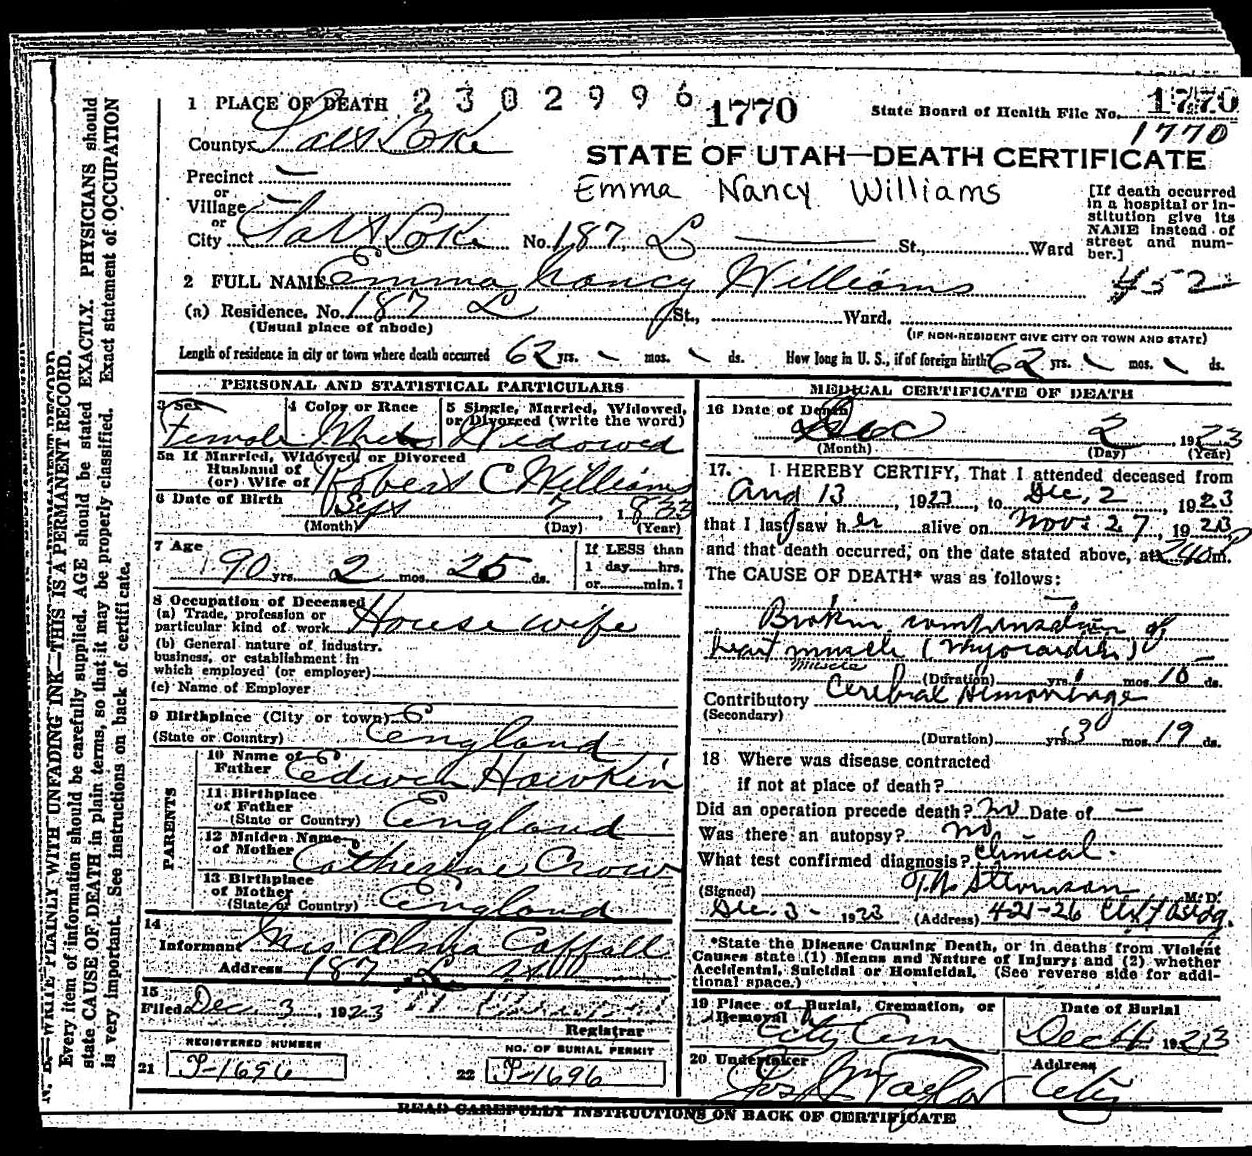 1 PLACE OF DEATH 2302996 1770 State Board of Health File No. 1770
1770
County Salt Lake
STATE OF UTAH—DEATH CERTIFICATE
Precinct —
or
Village —
or
City Salt Lake No. 187 L St., Ward
Emma Nancy Williams
[If death occurred
in a hospital or in-
stitution give its
NAME instead of
street and num-
ber.]
2 FULL NAME Emma Nancy Williams
452
(a) Residence. No. 187 L St., Ward.
(Usual place of abode) (IF NON-RESIDENT GIVE CITY OR TOWN AND STATE)
Length of residence in city or town where death occurred 62 yrs. - mos. - ds. How long in U. S., if of foreign birth? 62 yrs. - mos. - ds.
PERSONAL AND STATISTICAL PARTICULARS
3 Sex
Female
4 Color or Race
White
5 Single, Married, Widowed,
or Divorced (write the word)
Widowed
5a If Married, Widowed, or Divorced
Husband of
(or) Wife of Robert C Williams
6 Date of Birth Sept 7, 1833
(Month) (Day) (Year)
7 Age
90 yrs. 2 mos. 25 ds.
If LESS than
1 day hrs.
or min.?
8 Occupation of Deceased
(a) Trade, profession or
particular kind of work Housewife
(b) General nature of industry,
business, or establishment in
which employed (or employer)
(c) Name of Employer
9 Birthplace (City or town)
(State or Country) England
PARENTS
10 Name of
Father Edwin Hawkin
11 Birthplace
of Father
(State or Country) England
12 Maiden Name
of Mother Catherine Crow
13 Birthplace
of Mother
(State or Country) England
14
Informant Mrs Alma Caffall
Address 187 L St
15
Filed Dec. 3, 1923
Registrar
REGISTERED NUMBER
21 P-1696
NO. OF BURIAL PERMIT
22 P-1696
MEDICAL CERTIFICATE OF DEATH
16 Date of Death
Dec 2, 1923
(Month) (Day) (Year)
17. I HEREBY CERTIFY, That I attended deceased from
Aug 13, 1923, to Dec. 2, 1923
that I last saw her alive on Nov. 27, 1923,
and that death occurred, on the date stated above, at 240 P m.
The CAUSE OF DEATH* was as follows:
Broken compensation of
heart muscle (Myocarditis)
muscle
(Duration) yrs. mos. 15 ds.
Contributory Cerebral Hemorrhage
(Secondary)
(Duration) yrs. 3 mos. 19 ds.
18 Where was disease contracted
if not at place of death?
Did an operation precede death? no Date of —
Was there an autopsy? no
What test confirmed diagnosis? Clinical.
(Signed) Stevenson M.D.
Dec. 3- 1923 (Address) 421-26 Clift Bldg.
*State the Disease Causing Death, or in deaths from Violent
Causes state (1) Means and Nature of Injury; and (2) whether
Accidental, Suicidal or Homicidal. (See reverse side for addi-
tional space.)
19 Place of Burial, Cremation, or
Removal
City Cem
Date of Burial
Dec 4 1923
20 Undertaker
Jos Wm Taylor
Address
City
READ CAREFULLY INSTRUCTIONS ON BACK OF CERTIFICATE
N. B.—WRITE PLAINLY WITH UNFADING INK—THIS IS A PERMANENT RECORD.
Every item of information should be carefully supplied. AGE should be stated EXACTLY. PHYSICIANS should
state CAUSE OF DEATH in plain terms, so that it may be properly classified. Exact statement of OCCUPATION
is very important. See instructions on back of certificate.